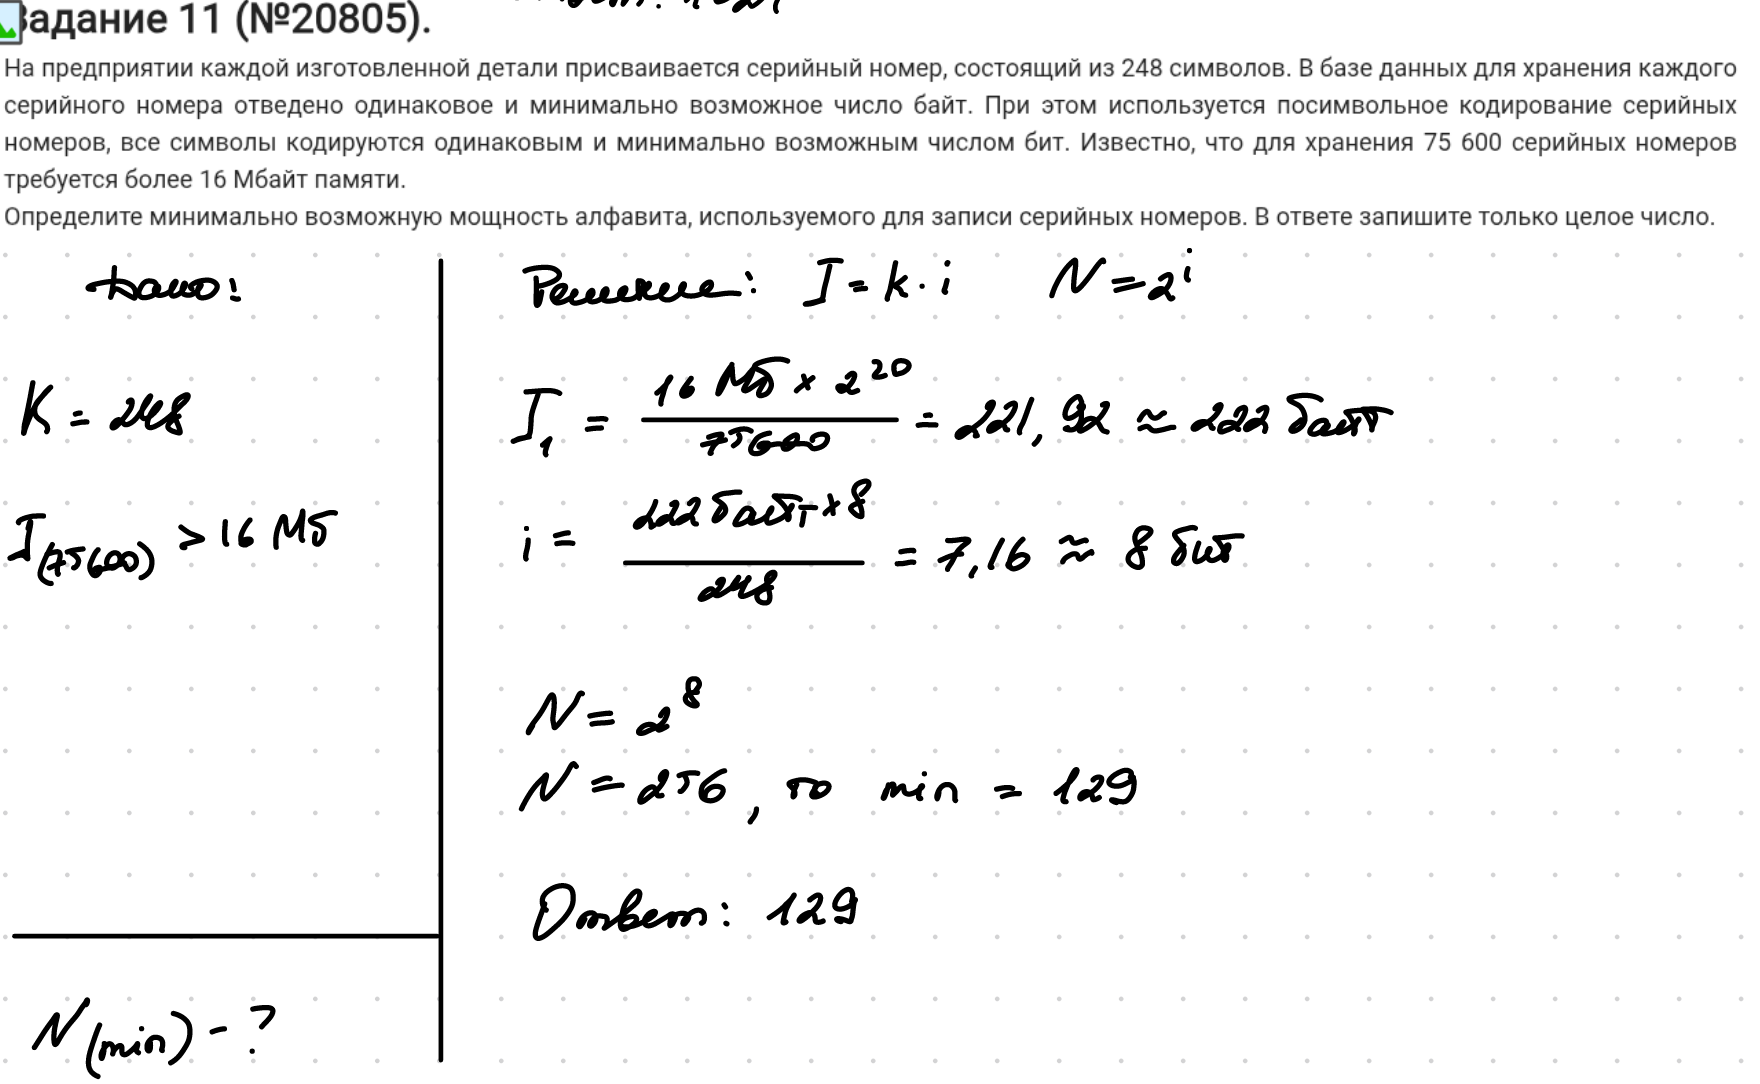 Задание 11 (№20805).
На предприятии каждой изготовленной детали присваивается серийный номер, состоящий из 248 символов. В базе данных для хранения каждого
серийного номера отведено одинаковое и минимально возможное число байт. При этом используется посимвольное кодирование серийных
номеров, все символы кодируются одинаковым и минимально возможным числом бит. Известно, что для хранения 75 600 серийных номеров
требуется более 16 Мбайт памяти.
Определите минимально возможную мощность алфавита, используемого для записи серийных номеров. В ответе запишите только целое число.
Дано:
K = 248
I(75600) > 16 Мб
N(min) - ?
Решение: I = k · i N = 2^i
I₁ = (16 Мб × 2^20) / 75600 = 221,92 ≈ 222 байт
i = (222 байт × 8) / 248 = 7,16 ≈ 8 бит
N = 2^8
N = 256, то min = 129
Ответ: 129